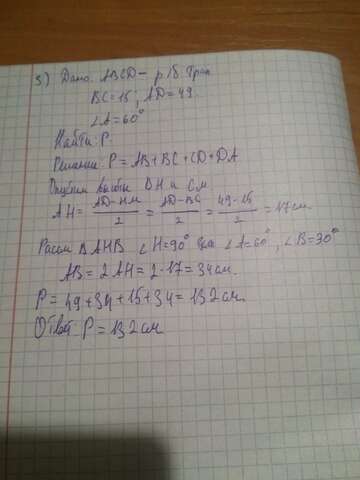 3) Дано: ABCD – р/б. Трап.
BC=15; AD=49.
∠A=60°
Найти: P
Решение: P=AB+BC+CD+DA
Опустим высоты BH и CM
AH= AD-HM/2 = AD-BC/2 = 49-15/2 = 17см.
Рассм ΔAHB ∠H=90° ∠A=60°, ∠B=30°
AB=2AH=2·17=34см.
P=49+34+15+34=132см.
Ответ: P=132см